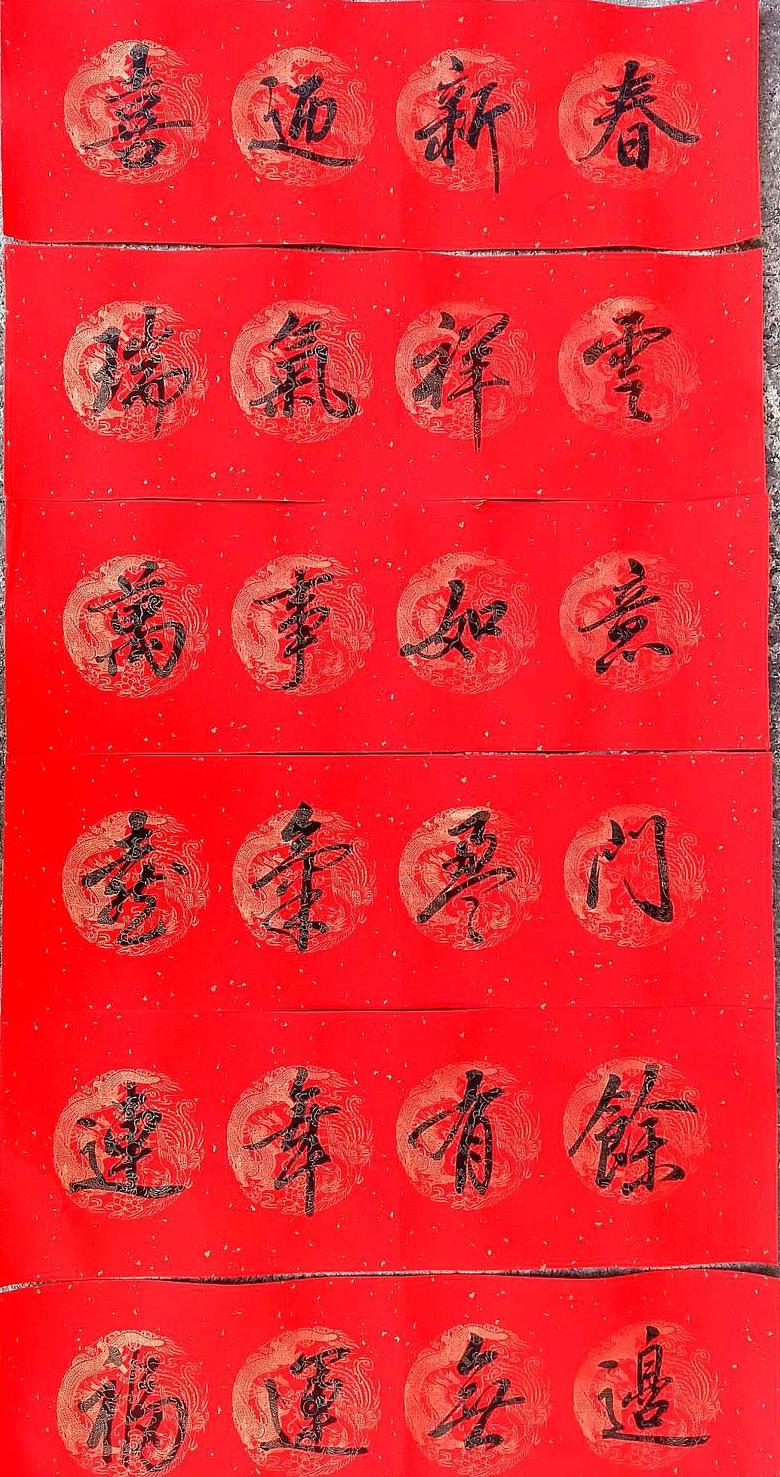 喜迎新春
瑞氣祥雲
萬事如意
喜氣盈門
連年有餘
福運無邊